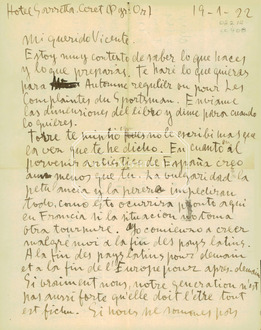 Hotel Garretta. Ceret (P. Ori)
19-1-22
Mi querido Vicente.
Estoy muy contento de saber lo que haces
y lo que preparas. Te haré lo que quieras
para Automne regulier ou pour Les
Complaintes du Sportman. Enviame
las dimensiones del libro y dime para cuando
lo quieres.
no le escribi mas que
la vez que te he dicho. En cuanto al
porvenir artistico de España creo
aun menos que tu. La vulgaridad la
petulancia y la pereza
todo, como este ocurrira pronto aqui
en Francia si la situacion no toma
otra tournure. Yo comienzo a creer
malgré moi a la fin des pays latins.
A la fin des pays latins pour demain
et a la fin de l'Europe pour après-demain
Si vraiment nous, notre generation n'est
pas aussi forte qu'elle doit l'être tout
est fichu. Si nous ne sommes pas